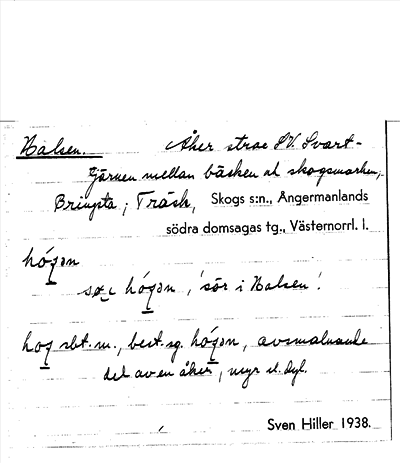 Halsen. Åker strax S.V. Svart-
tjärnen mellan bäcken o. skogsmarken,
Bringsta, Träsk, Skogs s:n., Ångermanlands
södra domsagas tg., Västernorrl. l.
hógən
hógən, 'sör i Halsen'.
sbt. m., best. sg. hógən, avsmalnande
del av en åker, myr el. dyl.
Sven Hiller 1938.